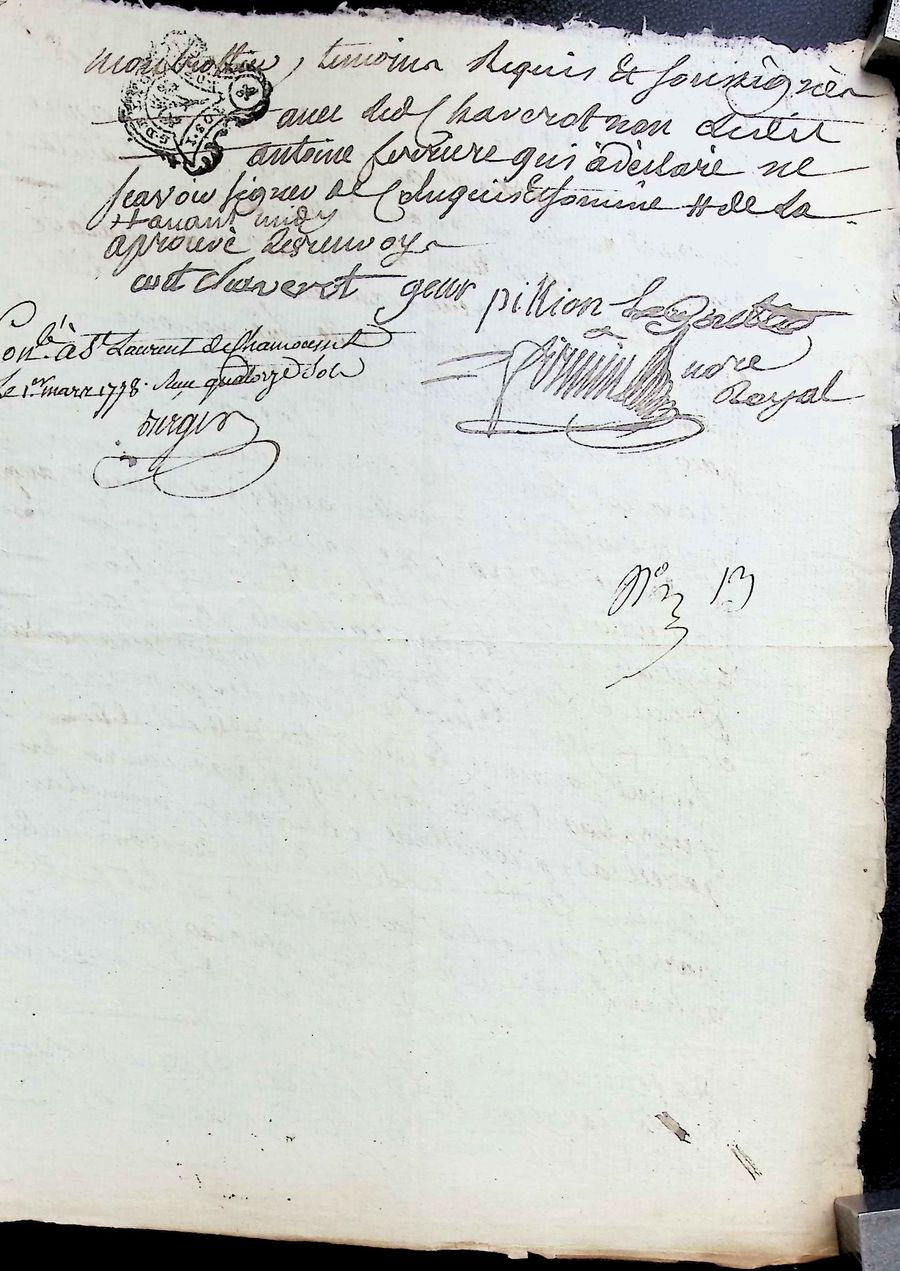 témoins Requis et soussignés
avec led Chaverot non ledit
antoine ferriere qui à déclaré ne
scavoir signer de ce enquis et sommé # de la
# avant midy
aprouvé les renvoys
cort chaverot geur pillion
nore
Royal
Conlé à St Laurent de Chamousset
Le 1er mars 1778. Reçu quatorze sols
No 13